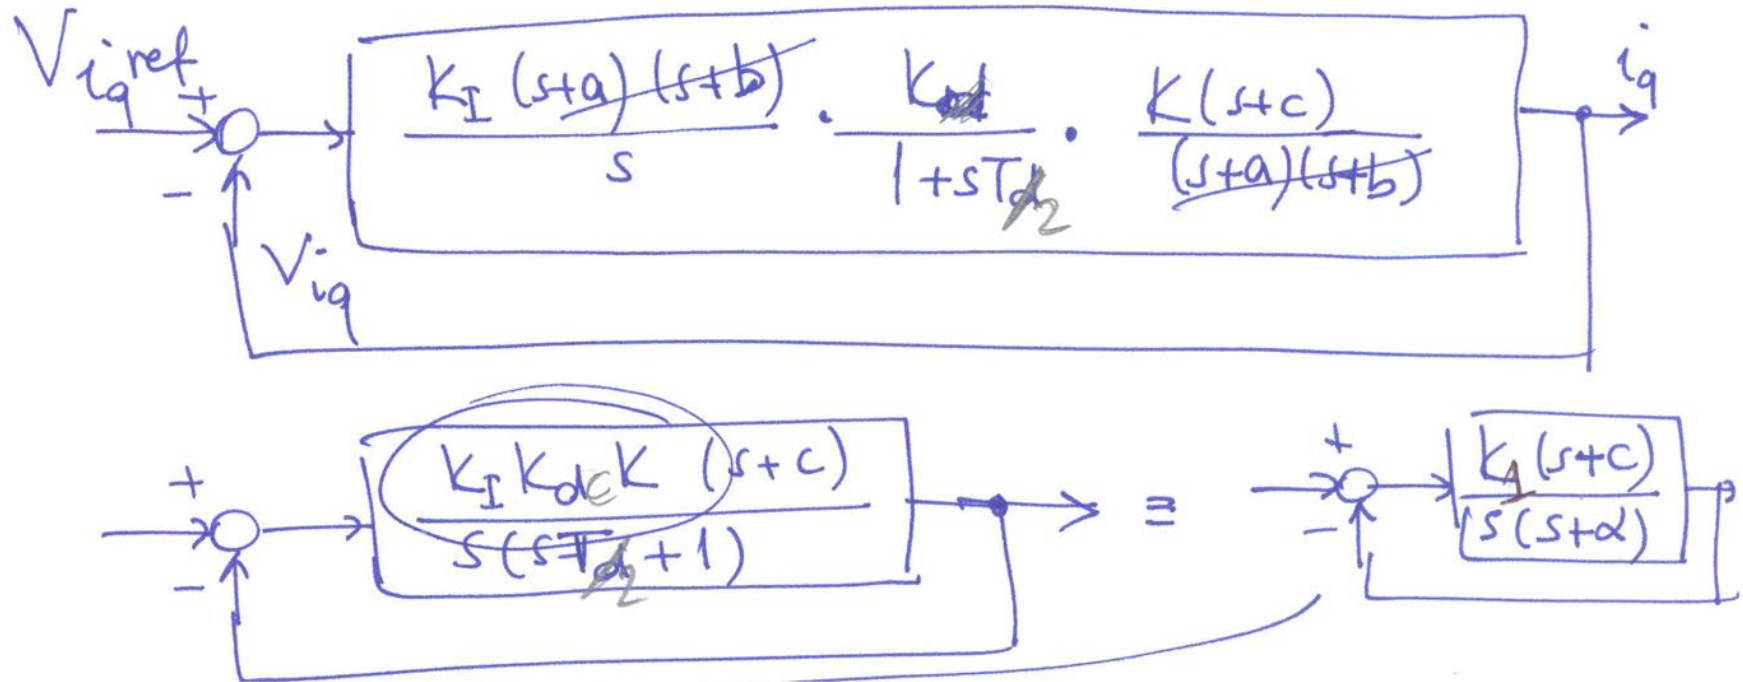 V_{iq}^{ref} + K_I (s+a) (s+b) / s · K / (1+sT_d/2) · K(s+c) / ((s+a)(s+b)) i_q
− V_{iq}
+ K_I K_{dc} K (s+c) / (s(sT_d/2+1)) ≡ + K_1 (s+c) / (s(s+α))
− −